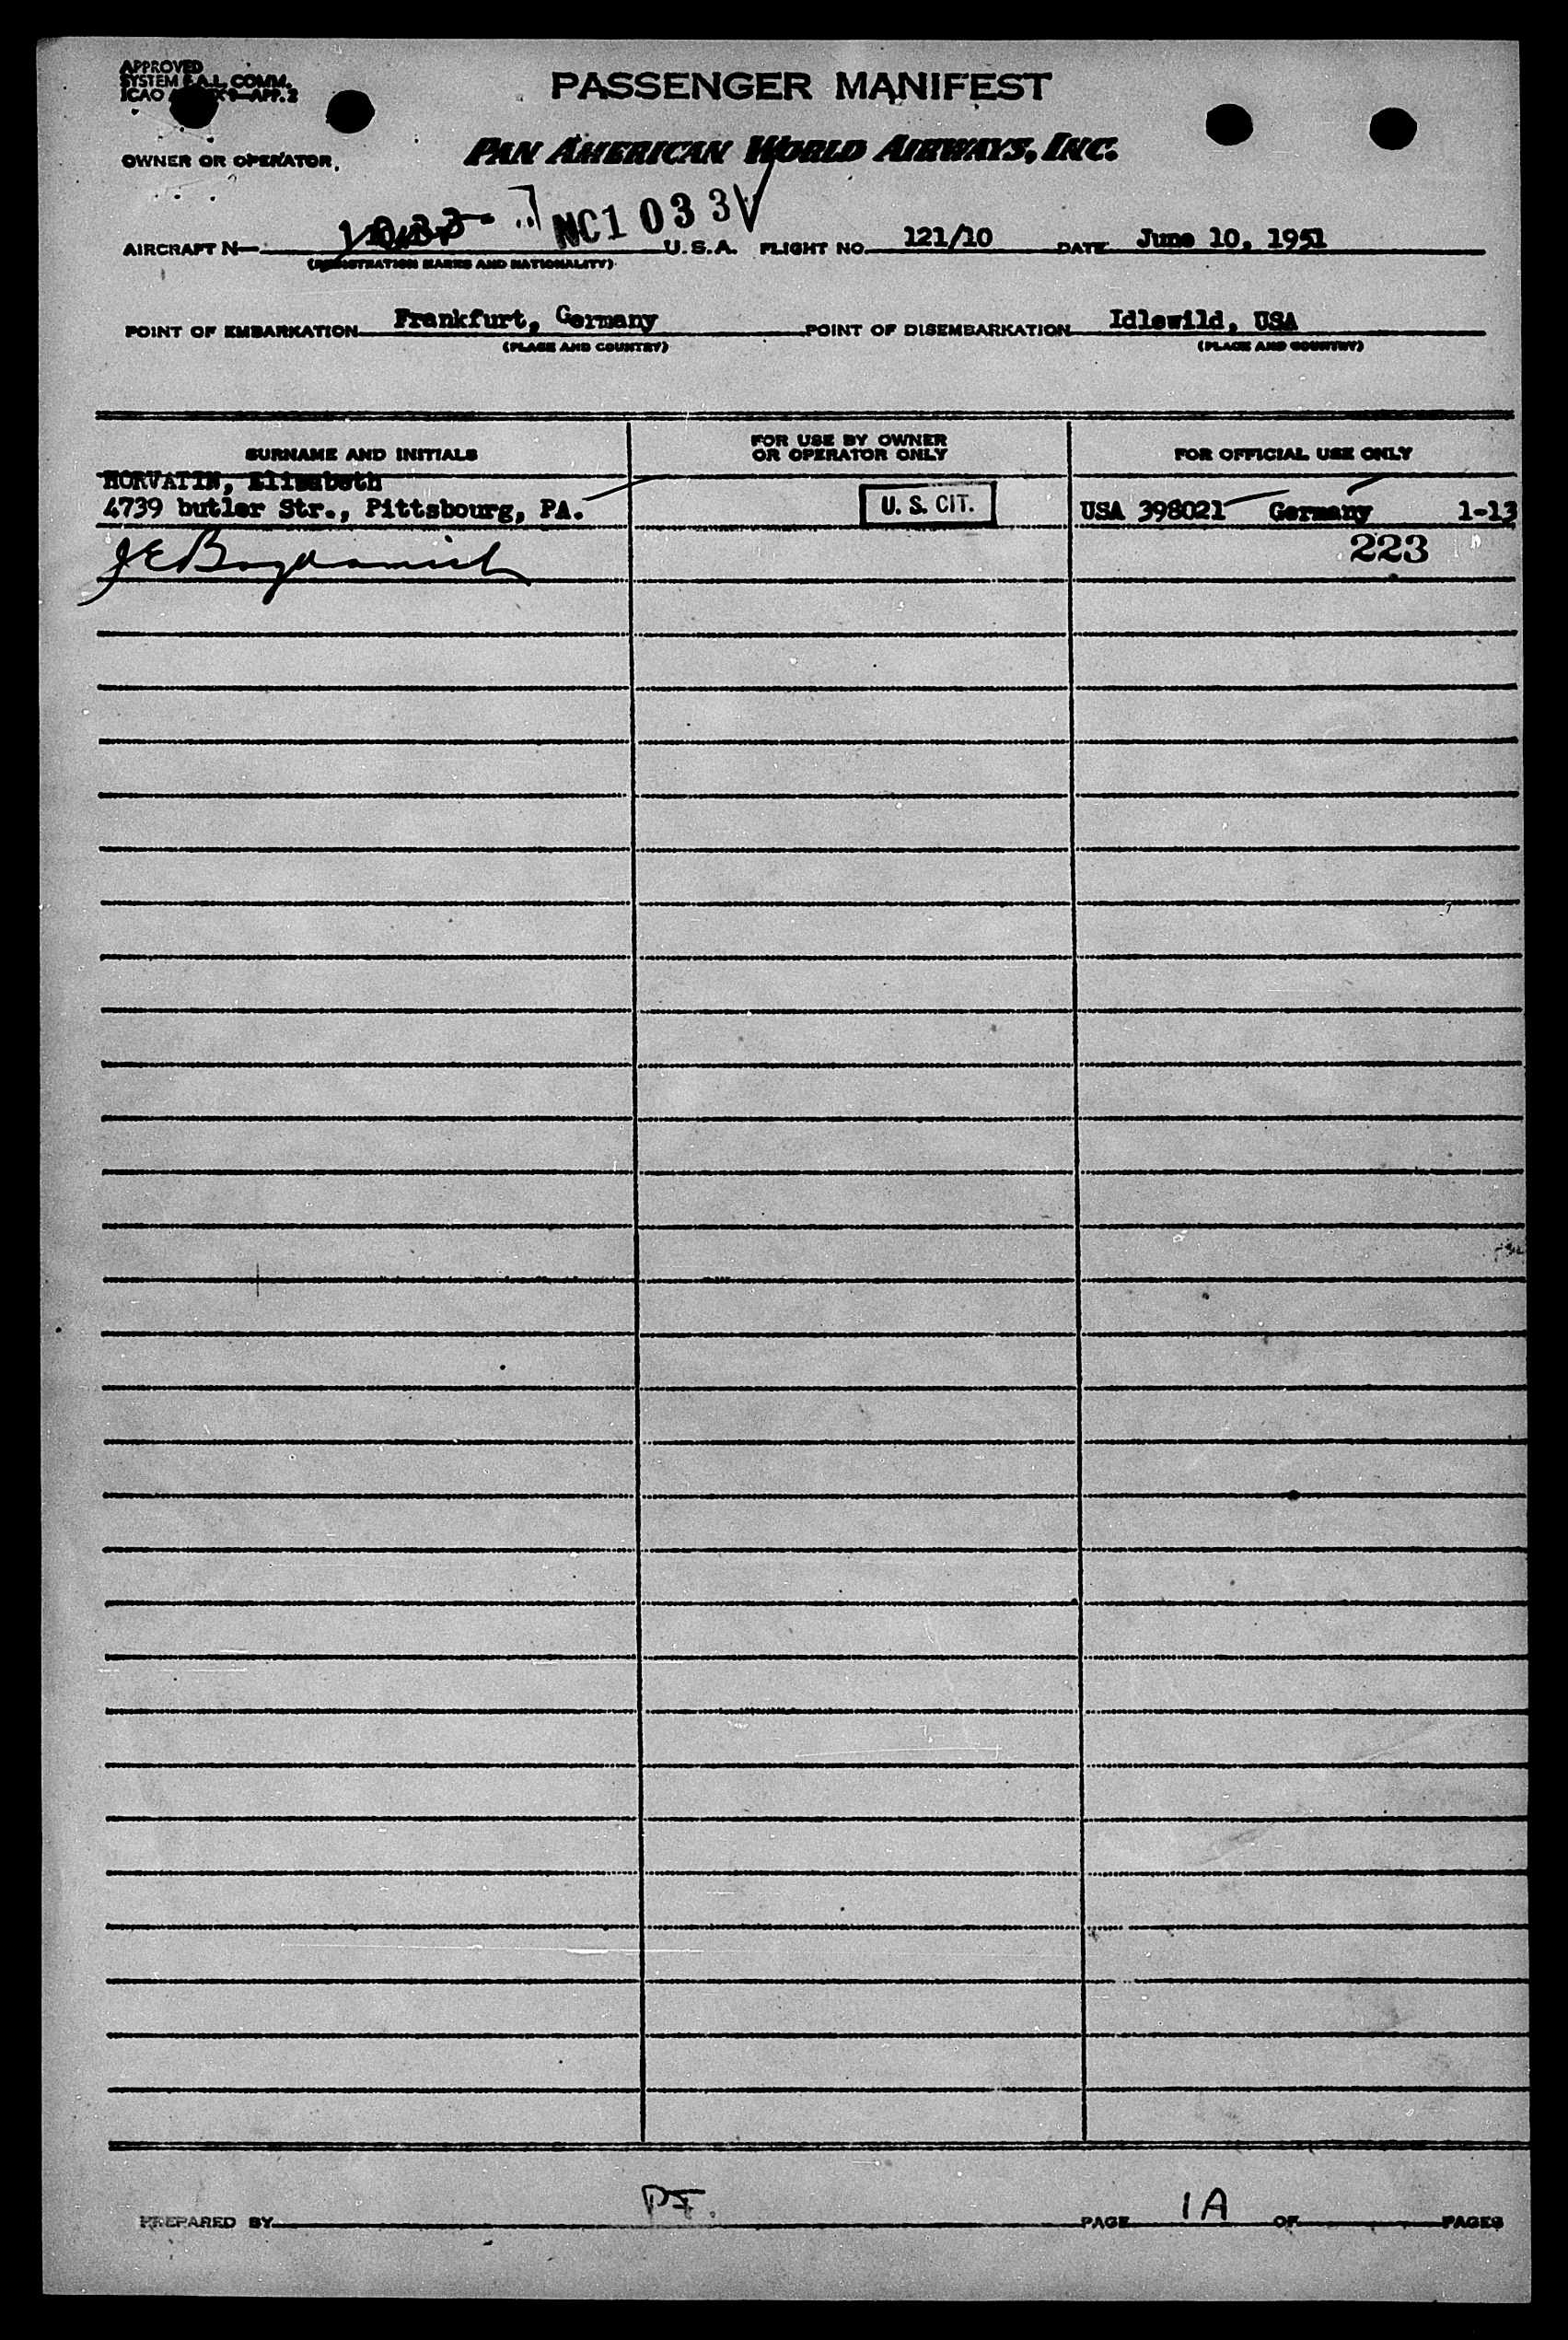 APPROVED
SYSTEM F.A.L. COMM.
ICAO 9—APP. 2
PASSENGER MANIFEST
OWNER OR OPERATOR, PAN AMERICAN WORLD AIRWAYS, INC.
AIRCRAFT N— NC1033V U. S. A. FLIGHT NO. 121/10 DATE June 10, 1951
(REGISTRATION MARKS AND NATIONALITY)
POINT OF EMBARKATION Frankfurt, Germany POINT OF DISEMBARKATION Idlewild, USA
(PLACE AND COUNTRY) (PLACE AND COUNTRY)
SURNAME AND INITIALS FOR USE BY OWNER OR OPERATOR ONLY FOR OFFICIAL USE ONLY
HORVATIN, Elisabeth
4739 butler Str., Pittsbourg, PA. U. S. CIT. USA 398021 Germany 1-13
223
PREPARED BY PAGE 1A OF PAGES